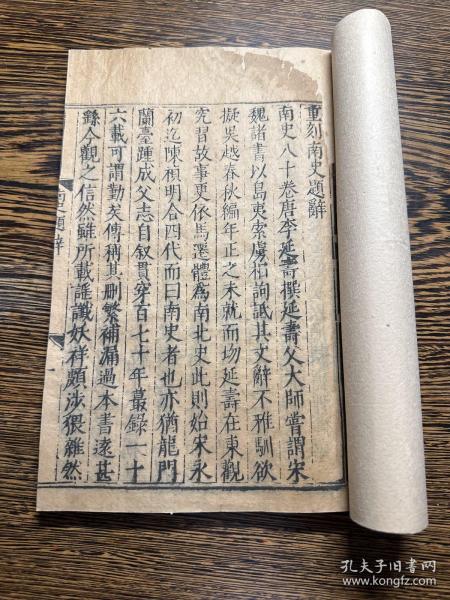 重刻南史題辭
南史八十卷唐李延壽撰延壽父大師嘗謂宋
魏諸書以島夷索虜相詢詆其文辭不雅馴欲
擬吳越春秋編年正之未就而歿延壽在東觀
究習故事更依馬遷體為南北史此則始宋永
初迄陳禎明合四代而曰南史者也亦猶龍門
蘭臺踵成父志自敘貫穿百七十年纂錄一十
六載可謂勤矣傳稱其刪繁補漏過本書遠甚
繇今觀之信然雖所載謠讖妖祥頗涉猥雜然
南史題辭
一
孔夫子旧书网
www.kongfz.com